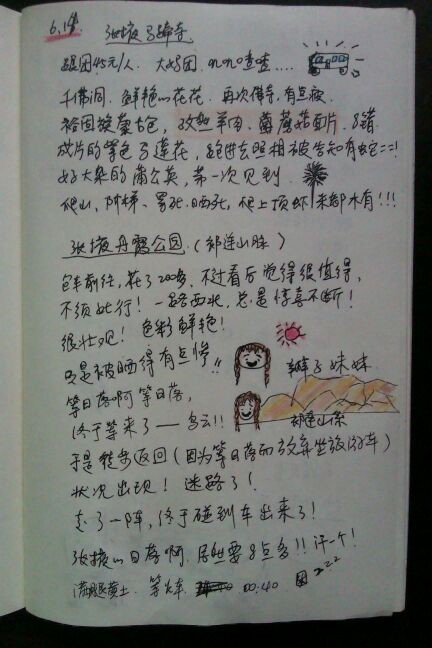 6.14. 张掖 马蹄寺
跟团45元/人. 大妈团. 叽叽喳喳....
千佛洞. 鲜艳的花花. 再次佛寺,有点疲.
裕固族蒙古包, 孜然羊肉. 蘑菇面片. 不错
成片的紫色马莲花, 跑进去照相被告知有蛇==!
好大朵的蒲公英, 第一次见到.
爬山, 阶梯、累死.晒死, 爬上顶 来都木有!!!
张掖丹霞公园. (祁连山脉)
包车前往, 花了200多, 不过看后觉得很值得,
不须此行! 一路西北, 总是惊喜不断!
很壮观! 色彩鲜艳!
只是被晒得有点惨!!
辫子妹妹
等日落啊等日落,
祁连山脉
终于等来了——乌云!!
于是徒步返回(因为等日落而放弃坐旅游车)
状况出现! 迷路了!
走了一阵, 终于碰到车出来了!
张掖的日落啊, 居然要8点多!! 汗一个!
满腿黄土. 等火车. 00:40 困 zzz